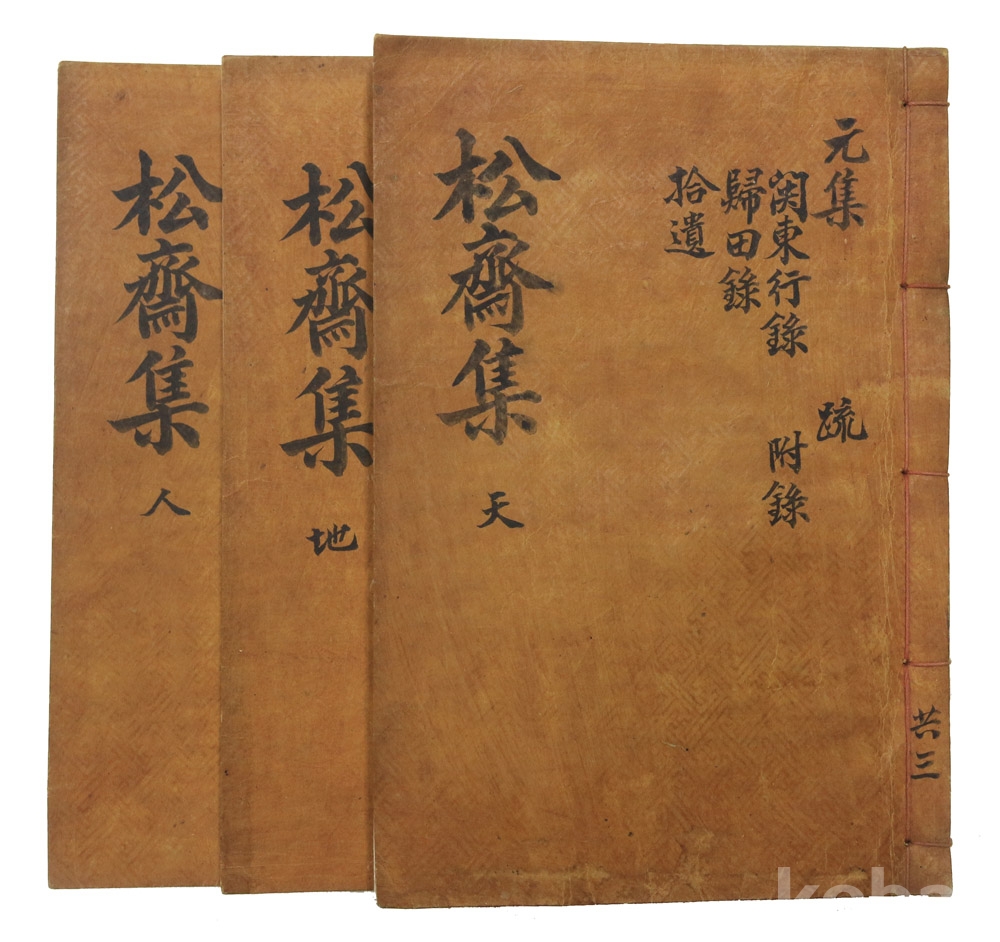 共三
元集 疏
関東行錄 附錄
歸田錄
拾遺
松齋集 天
松齋集 地
松齋集 人
koba